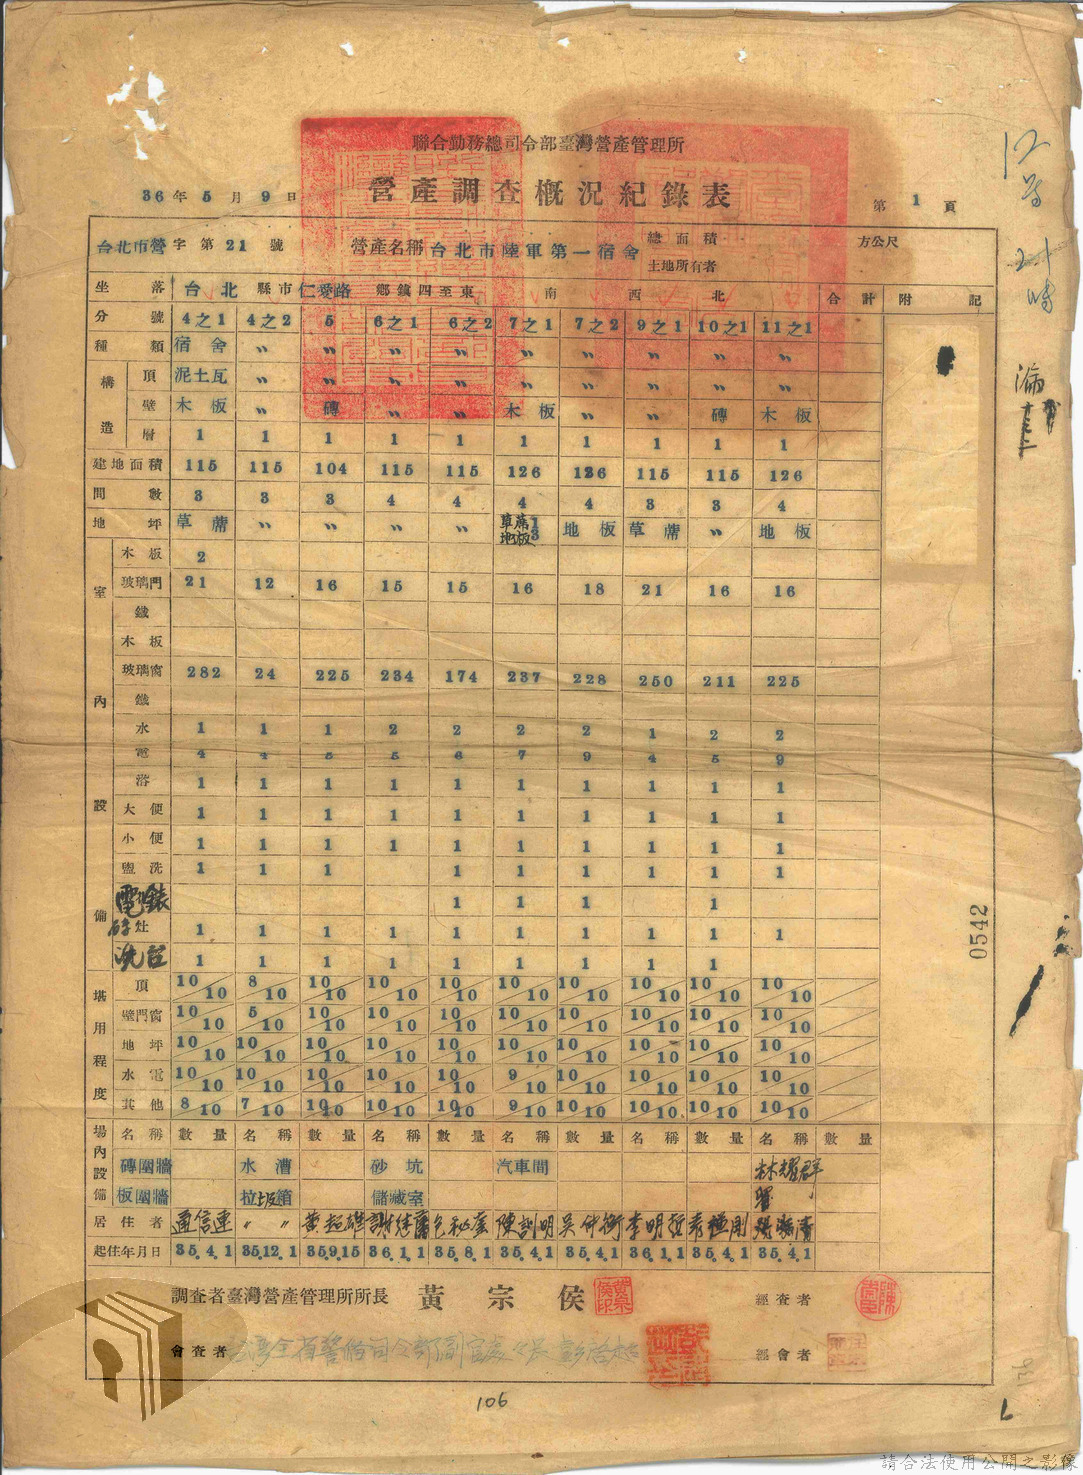 聯合勤務總司令部臺灣營產管理所
36年5月9日 營產調查概況紀錄表 第1頁
台北市營字第21號 營產名稱 台北市陸軍第一宿舍 總面積 方公尺
土地所有者
坐落 台北縣市仁愛路鄉鎮四至東 南 西 北 合計 附記
分號 4之1 4之2 5 6之1 6之2 7之1 7之2 9之1 10之1 11之1
種類 宿舍 〃 〃 〃 〃 〃 〃 〃 〃 〃
構造 頂 泥土瓦 〃 〃 〃 〃 〃 〃 〃 〃 〃
壁 木板 〃 磚 〃 〃 木板 〃 〃 磚 木板
層 1 1 1 1 1 1 1 1 1 1
建地面積 115 115 104 115 115 126 126 115 115 126
間數 3 3 3 4 4 4 4 3 3 4
地坪 草蓆 〃 〃 〃 〃 草蓆1 地板3 地板 草蓆 〃 地板
室內設備
木板 2
玻璃門 21 12 16 15 15 16 18 21 16 16
鐵
木板
玻璃窗 282 24 225 234 174 237 228 250 211 225
鐵
水 1 1 1 2 2 2 2 1 2 2
電 4 4 5 5 6 7 9 4 5 9
浴 1 1 1 1 1 1 1 1 1 1
大便 1 1 1 1 1 1 1 1 1 1
小便 1 1 1 1 1 1 1 1 1 1
盥洗 1 1 1 1 1 1 1 1 1
電錶 1 1 1 1
灶 1 1 1 1 1 1 1 1 1 1
洗台 1 1 1 1 1 1 1 1 1
堪用程度
頂 10/10 8/10 10/10 10/10 10/10 10/10 10/10 10/10 10/10 10/10
壁門窗 10/10 5/10 10/10 10/10 10/10 10/10 10/10 10/10 10/10 10/10
地坪 10/10 10/10 10/10 10/10 10/10 10/10 10/10 10/10 10/10 10/10
水電 10/10 10/10 10/10 10/10 10/10 9/10 10/10 10/10 10/10 10/10
其他 8/10 7/10 10/10 10/10 10/10 9/10 10/10 10/10 10/10 10/10
場內設備 名稱 數量 名稱 數量 名稱 數量 名稱 數量 名稱 數量 名稱 數量
磚圍牆 水漕 砂坑 汽車間 林耀群
板圍牆 垃圾箱 儲藏室
居住者 通信連 〃 〃 陳訓明 李明哲
起住年月日 35.4.1 35.12.1 35.9.15 36.1.1 35.8.1 35.4.1 35.4.1 36.1.1 35.4.1 35.4.1
調查者臺灣營產管理所所長 黃宗侯 經查者
會查者 台灣全省警備司令部副官處 經會者
0542
106
請合法使用公開之影像